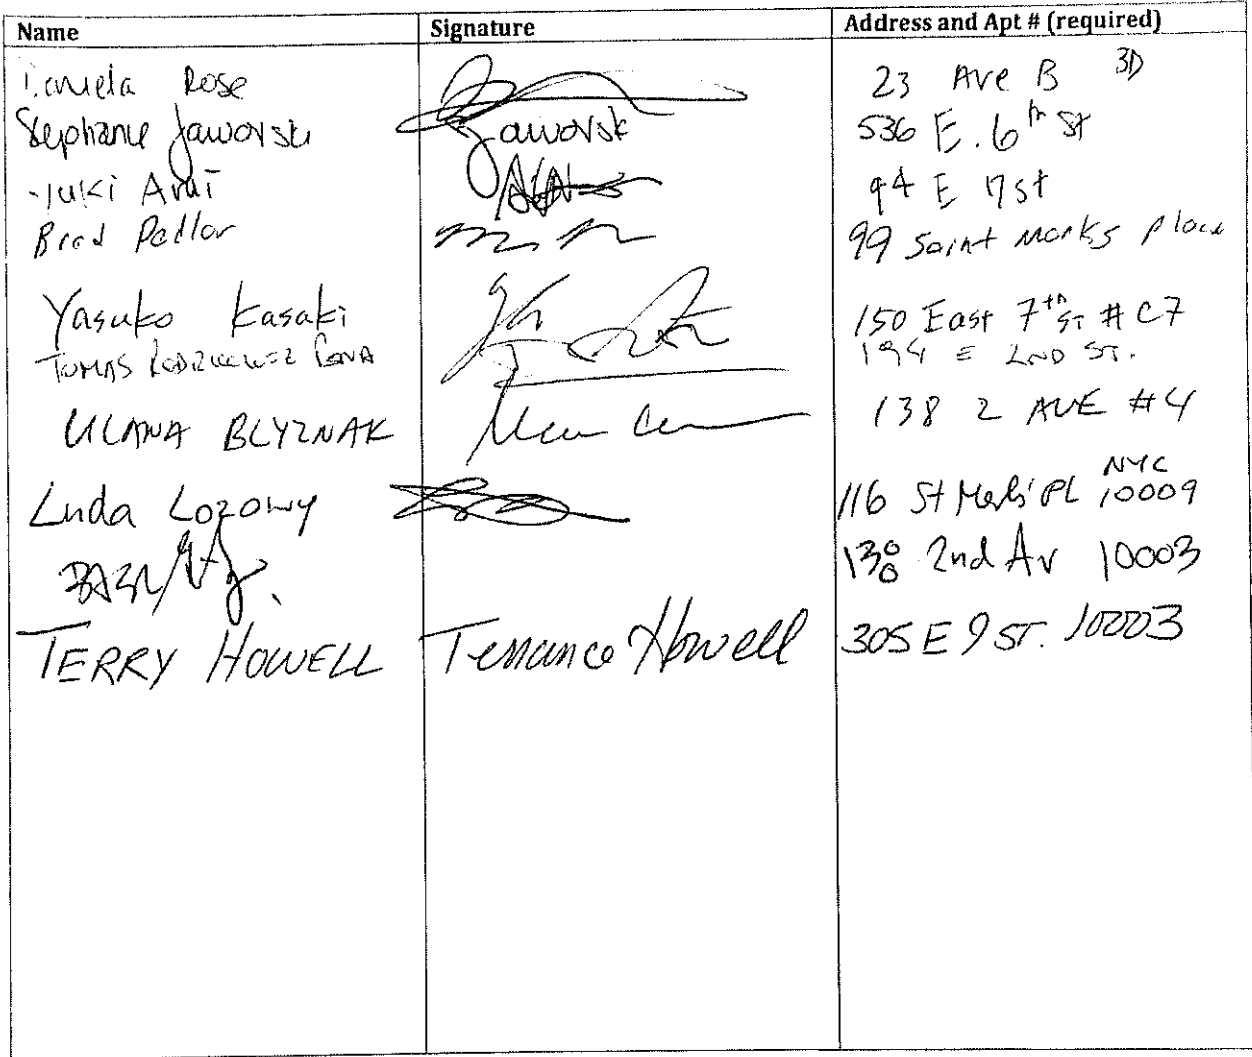 Name Signature Address and Apt # (required)
Rose 23 Ave B 3D
Stephanie Jaworski Jaworsk 536 E. 6th St
Yuki Arai 94 E 7 St
Brad Pedlar 99 Saint Marks Place
Yasuko Kasaki 150 East 7th St # C7
TOMAS 194 E 2ND ST.
ULANA BLYZNAK 138 2 AVE #4
Luda Lozowy 116 St Marks Pl NYC 10009
2nd Av 10003
TERRY HOWELL Terrance Howell 305 E 9 ST. 10003